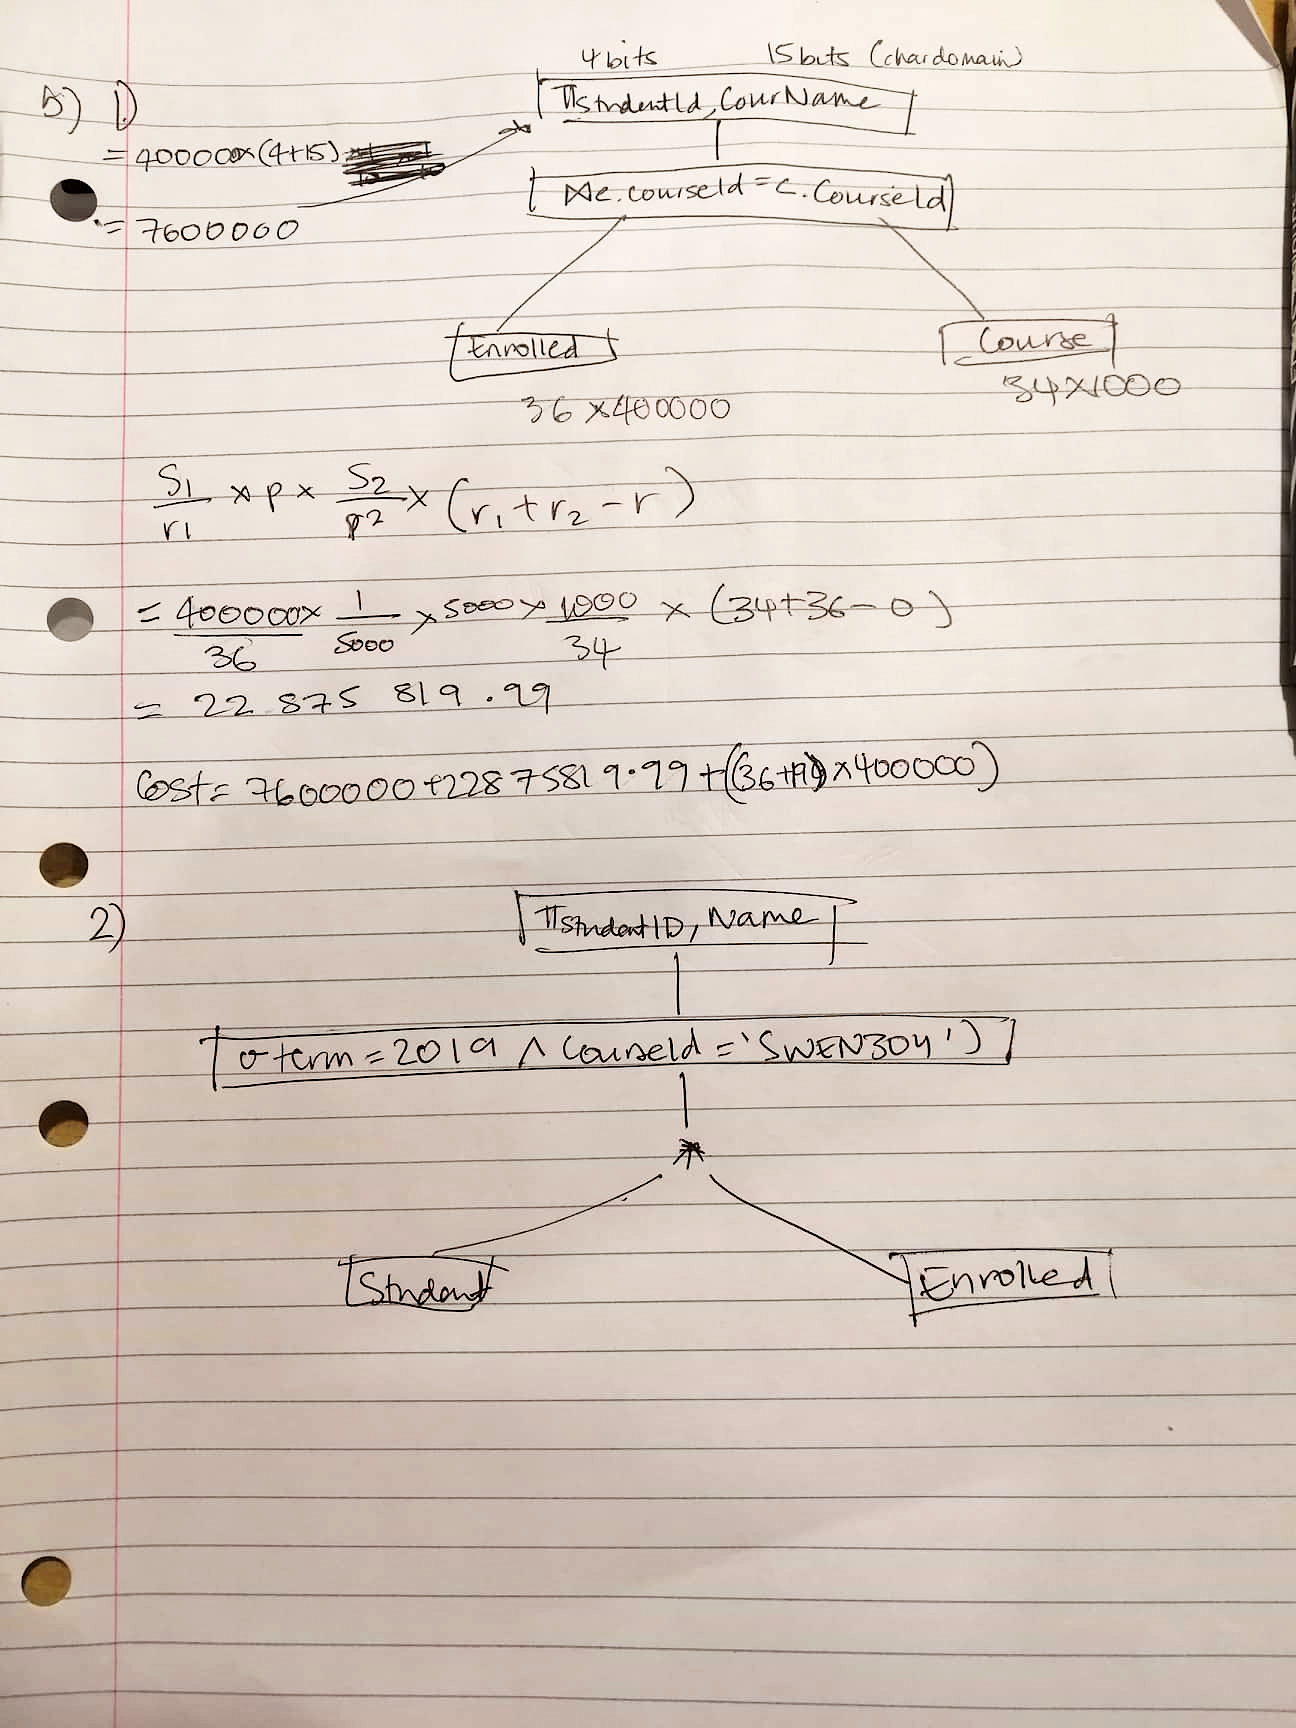 4bits 15bits (chardomain)
5) 1)
πStudentId, CourName
= 400000x(4+15)
⋈e.courseId = c.CourseId
= 7600000
Enrolled
Course
34x1000
36 x400000
S1/r1 x p x S2/r2 x (r1 + r2 - r)
= 400000x/36 1/5000 x 5000 x 1000/34 x (34+36-0)
= 22 875 819.99
Cost = 7600000+22875819.99+((36+19)x400000)
2)
πStudentID, Name
σ term = 2019 ∧ CourseId = 'SWEN304')
*
Student
Enrolled